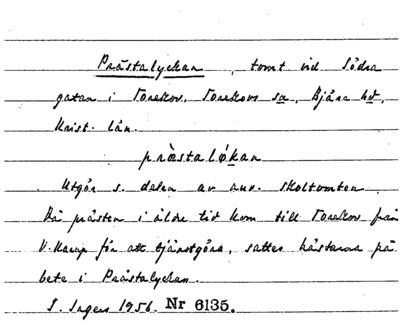 Prästalyckan, tomt vid Södra
gatan i Torekov. Torekovs sn, Bjäre hd,
Krist. län.
præstaløkan
Utgör s. delen av nuv. skoltomten.
Då prästen i äldre tid kom till Torekov från
V. Karup för att tjänstgöra, sattes hästarna på
bete i Prästalyckan.
S. Ingers 1956. Nr 6135.